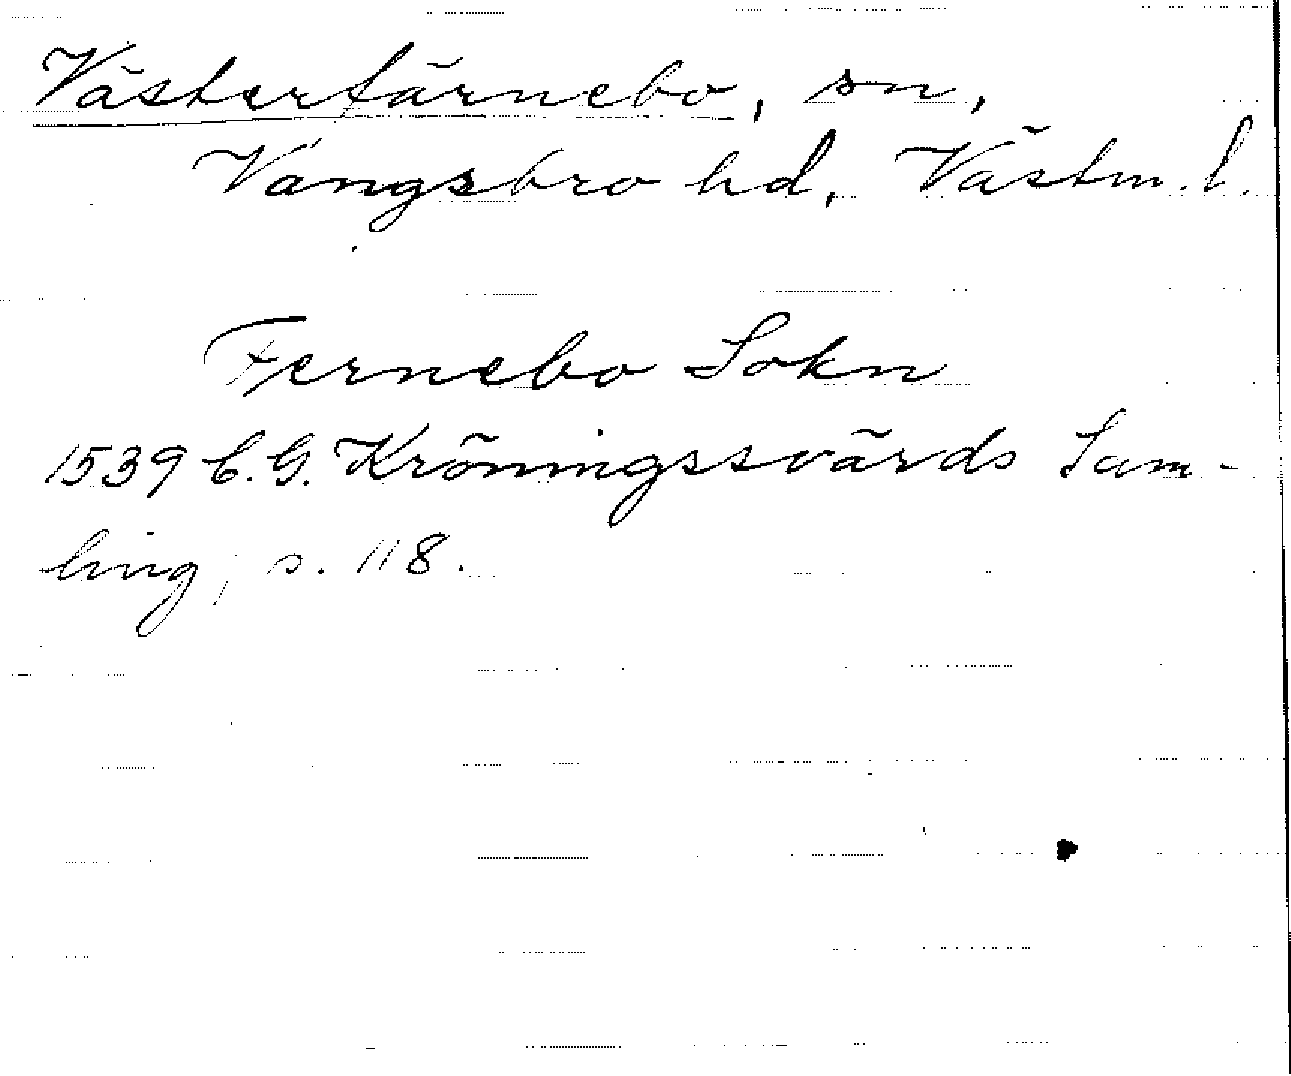 Västerfärnebo, sn,
Vångsbro hd, Västm. l.
Fernebo Sokn
1539 C. G. Kröningssvärds Sam-
ling, s. 118.